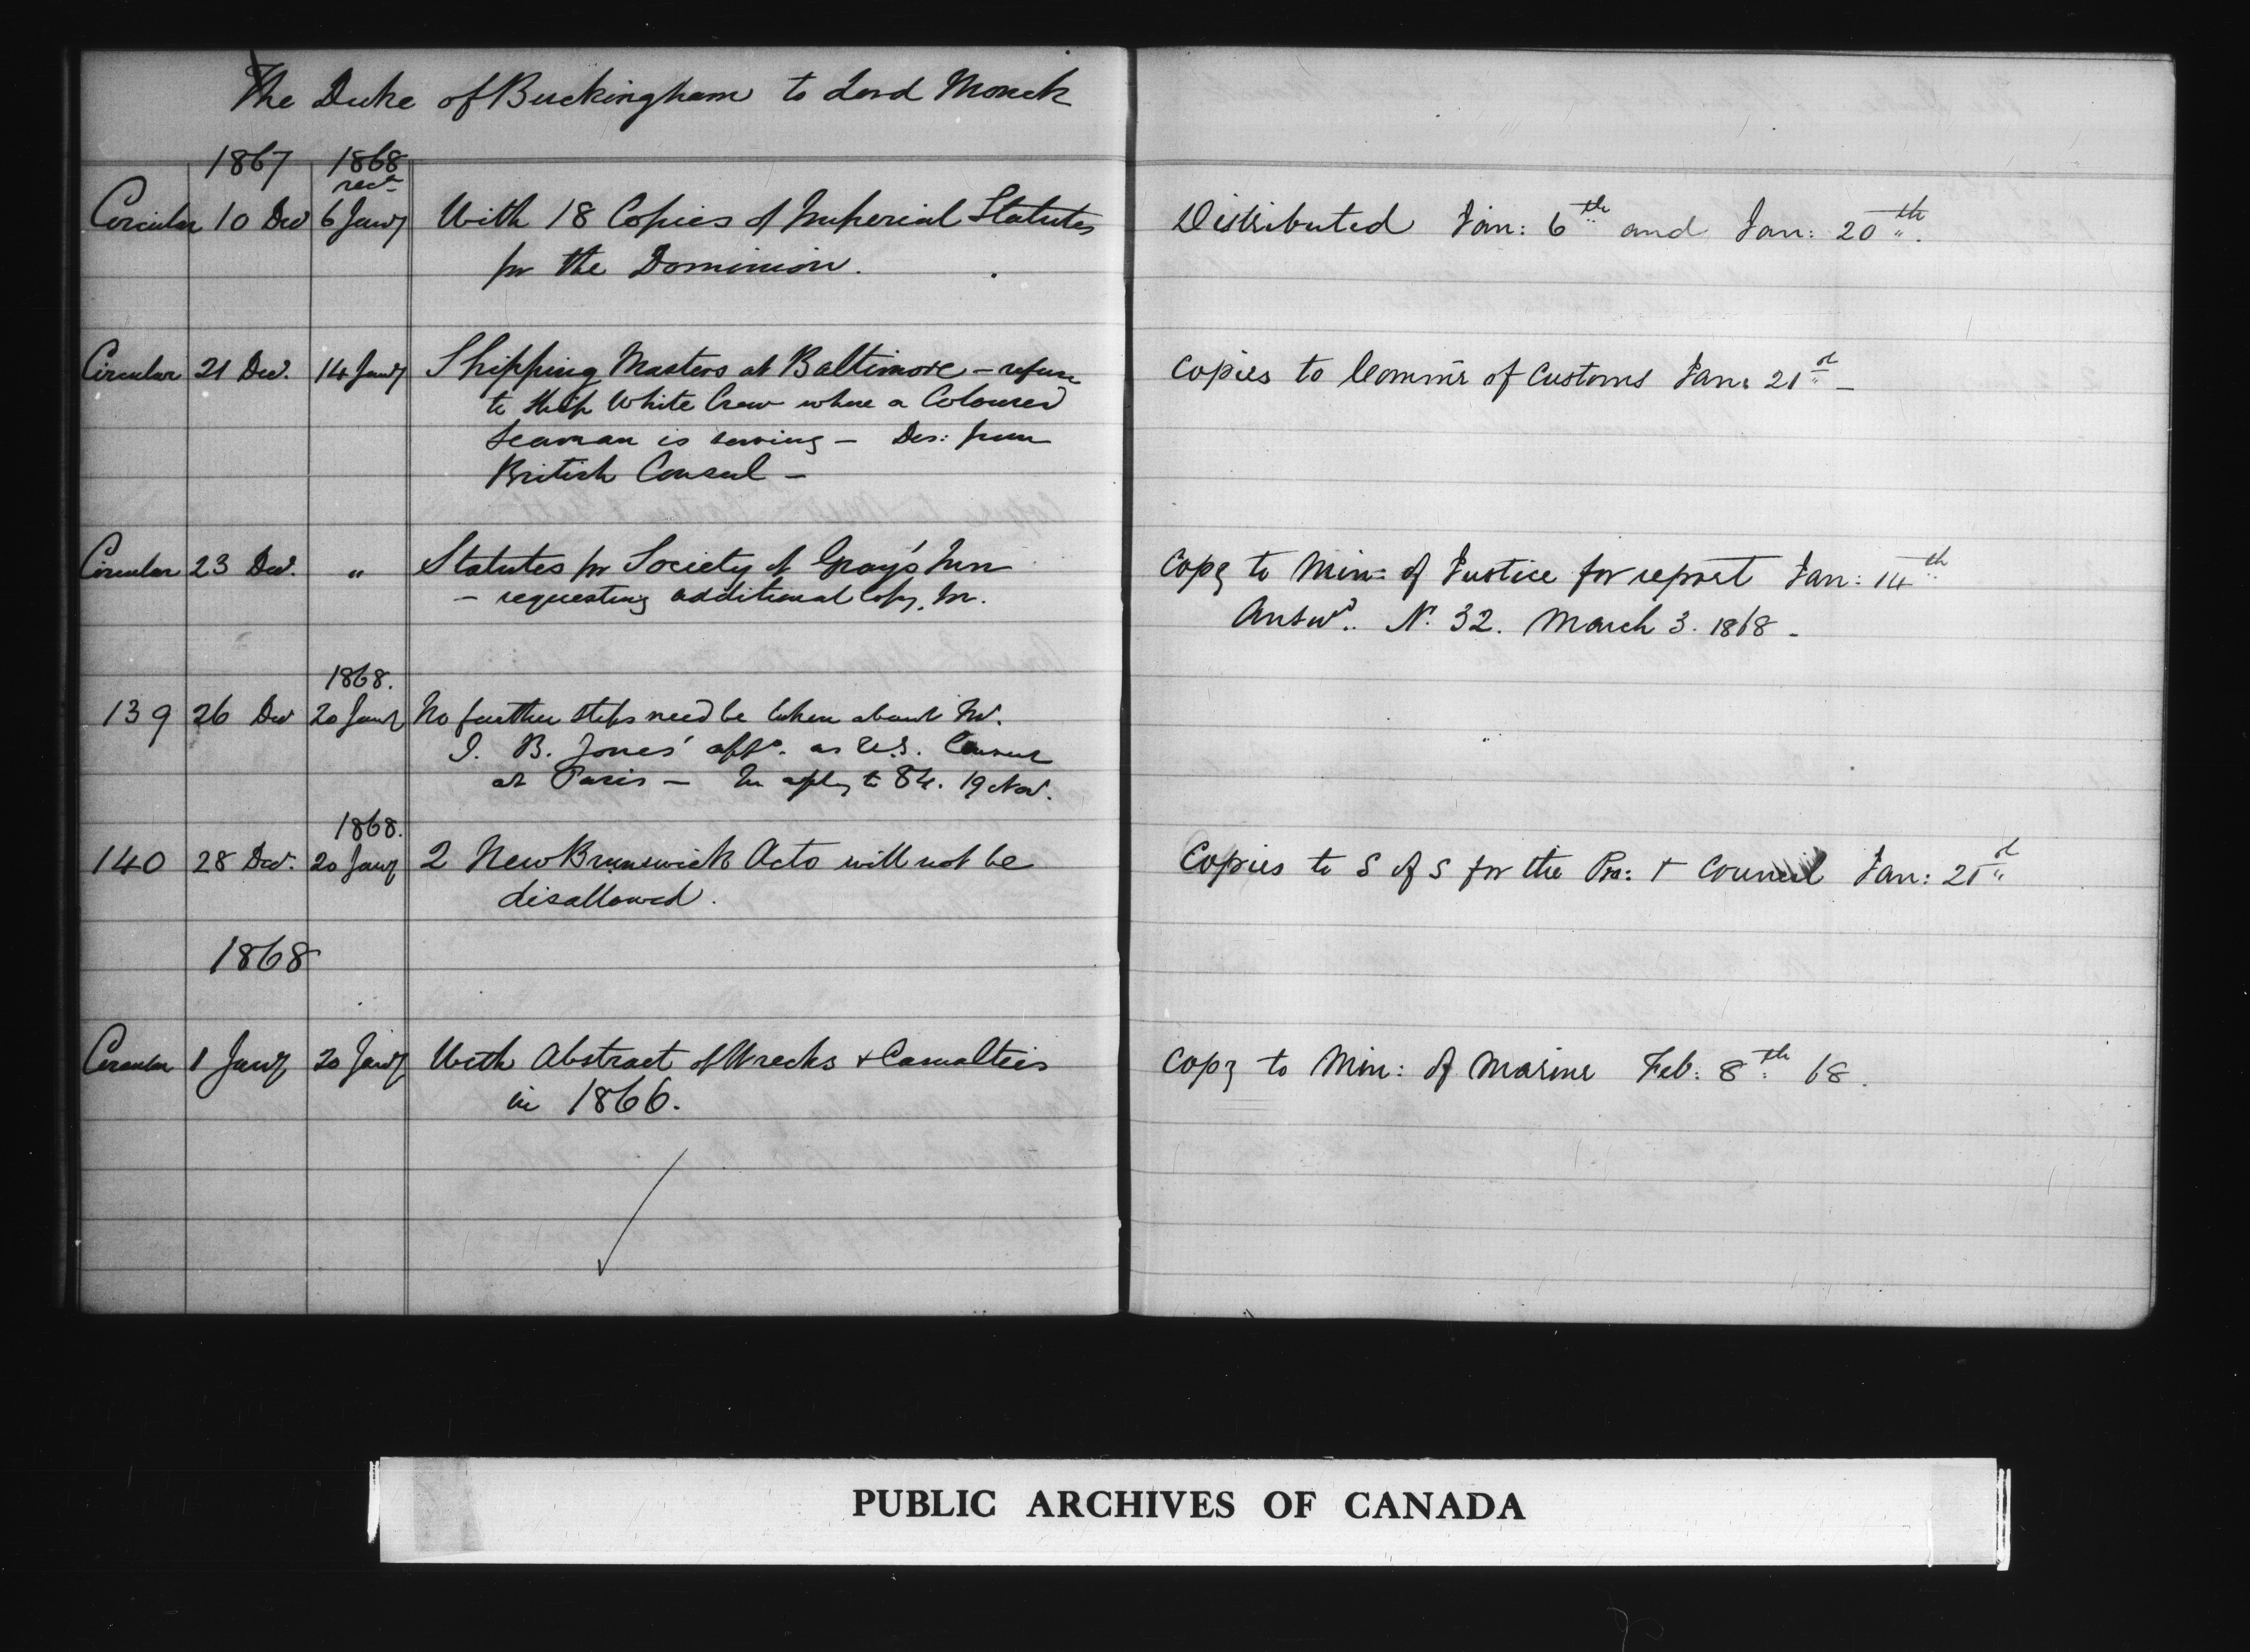 The Duke of Buckingham to Lord Monck
1867 1868
recd
Circular 10 Decr 6 Jany With 18 Copies of Imperial Statutes
for the Dominion.
Distributed Jan: 6th and Jan: 20th.
Circular 21 Decr. 14 Jany Shipping Masters at Baltimore – refuse
to ship White Crew where a Coloured
Seaman is serving – Des: from
British Consul –
Copies to Commr of Customs Jan: 21st –
Circular 23 Decr. " Statutes for Society of Gray's Inn
– requesting additional Copy,
Copy to Min: of Justice for report Jan: 14th
Answd. No. 32. March 3. 1868 –
1868.
139 26 Decr 20 Jany No further steps need be taken about Mr.
J. B. Jones' appt. as U.S. Consul
at Paris – In reply to 84. 19 Nov.
1868.
140 28 Decr. 20 Jany 2 New Brunswick Acts will not be
disallowed.
Copies to S of S for the Pro: & Council Jan: 21st
1868
Circular 1 Jany 20 Jany With Abstract of Wrecks & Casualties
in 1866.
Copy to Min: of Marine Feb: 8th 68.
PUBLIC ARCHIVES OF CANADA